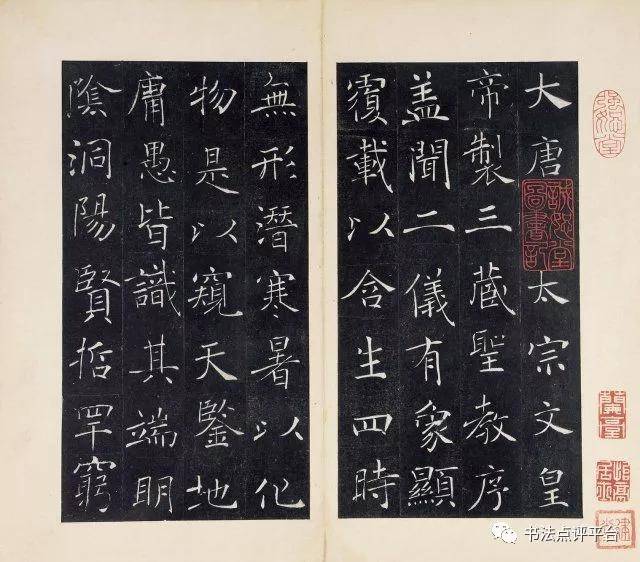 大唐太宗文皇
帝製三藏聖教序
盖聞二儀有象顯
覆載以含生四時
無形潛寒暑以化
物是以窺天鑒地
庸愚皆識其端明
陰洞陽賢哲罕窮
书法点评平台